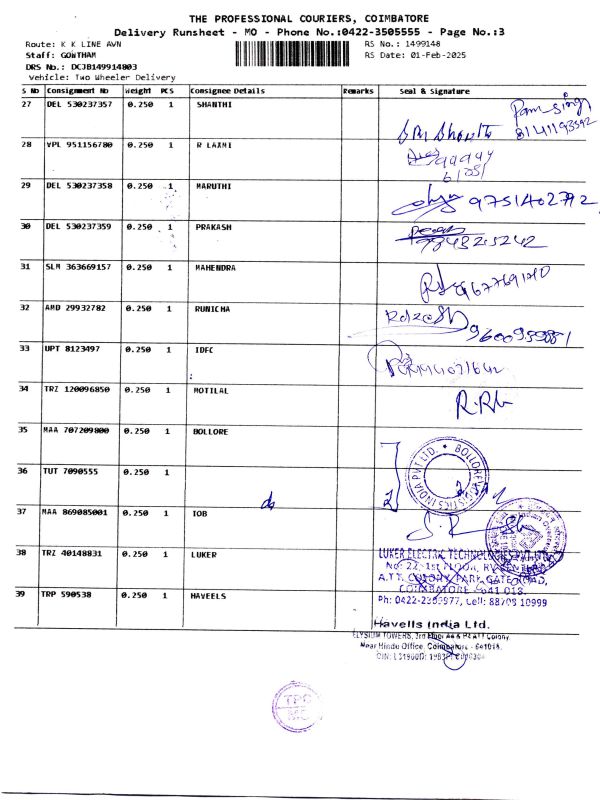 THE PROFESSIONAL COURIERS, COIMBATORE
Delivery Runsheet - MO - Phone No.:0422-3505555 - Page No.:3
Route: K K LINE AVN RS No.: 1499148
Staff: GOWTHAM RS Date: 01-Feb-2025
DRS No.: DCJB149914803
Vehicle: Two Wheeler Delivery
S No Consignment No Weight PCS Consignee Details Remarks Seal & Signature
27 DEL 530237357 0.250 1 SHANTHI
8141193592
28 VPL 951156780 0.250 1 R LAXMI
29 DEL 530237358 0.250 1 MARUTHI 9751402792
30 DEL 530237359 0.250 1 PRAKASH
31 SLM 363669157 0.250 1 MAHENDRA
32 AMD 29932782 0.250 1 RUNICHA
33 UPT 8123497 0.250 1 IDFC
34 TRZ 120096850 0.250 1 MOTILAL
35 MAA 707209800 0.250 1 BOLLORE
36 TUT 7090555 0.250 1
37 MAA 869085001 0.250 1 IOB
38 TRZ 40148831 0.250 1 LUKER
LUKER ELECTRIC TECHNOLOGIES PVT LTD
No: 22, 1st FLOOR,
A.T.T. COLONY, PARK GATE ROAD,
COIMBATORE - 641 018.
39 TRP 590538 0.250 1 HAVEELS
Cell: 88708 10999
Havells India Ltd.
ELYSIUM TOWERS, 3rd Floor
Near Hindu Office, Coimbatore - 641018.
TPC